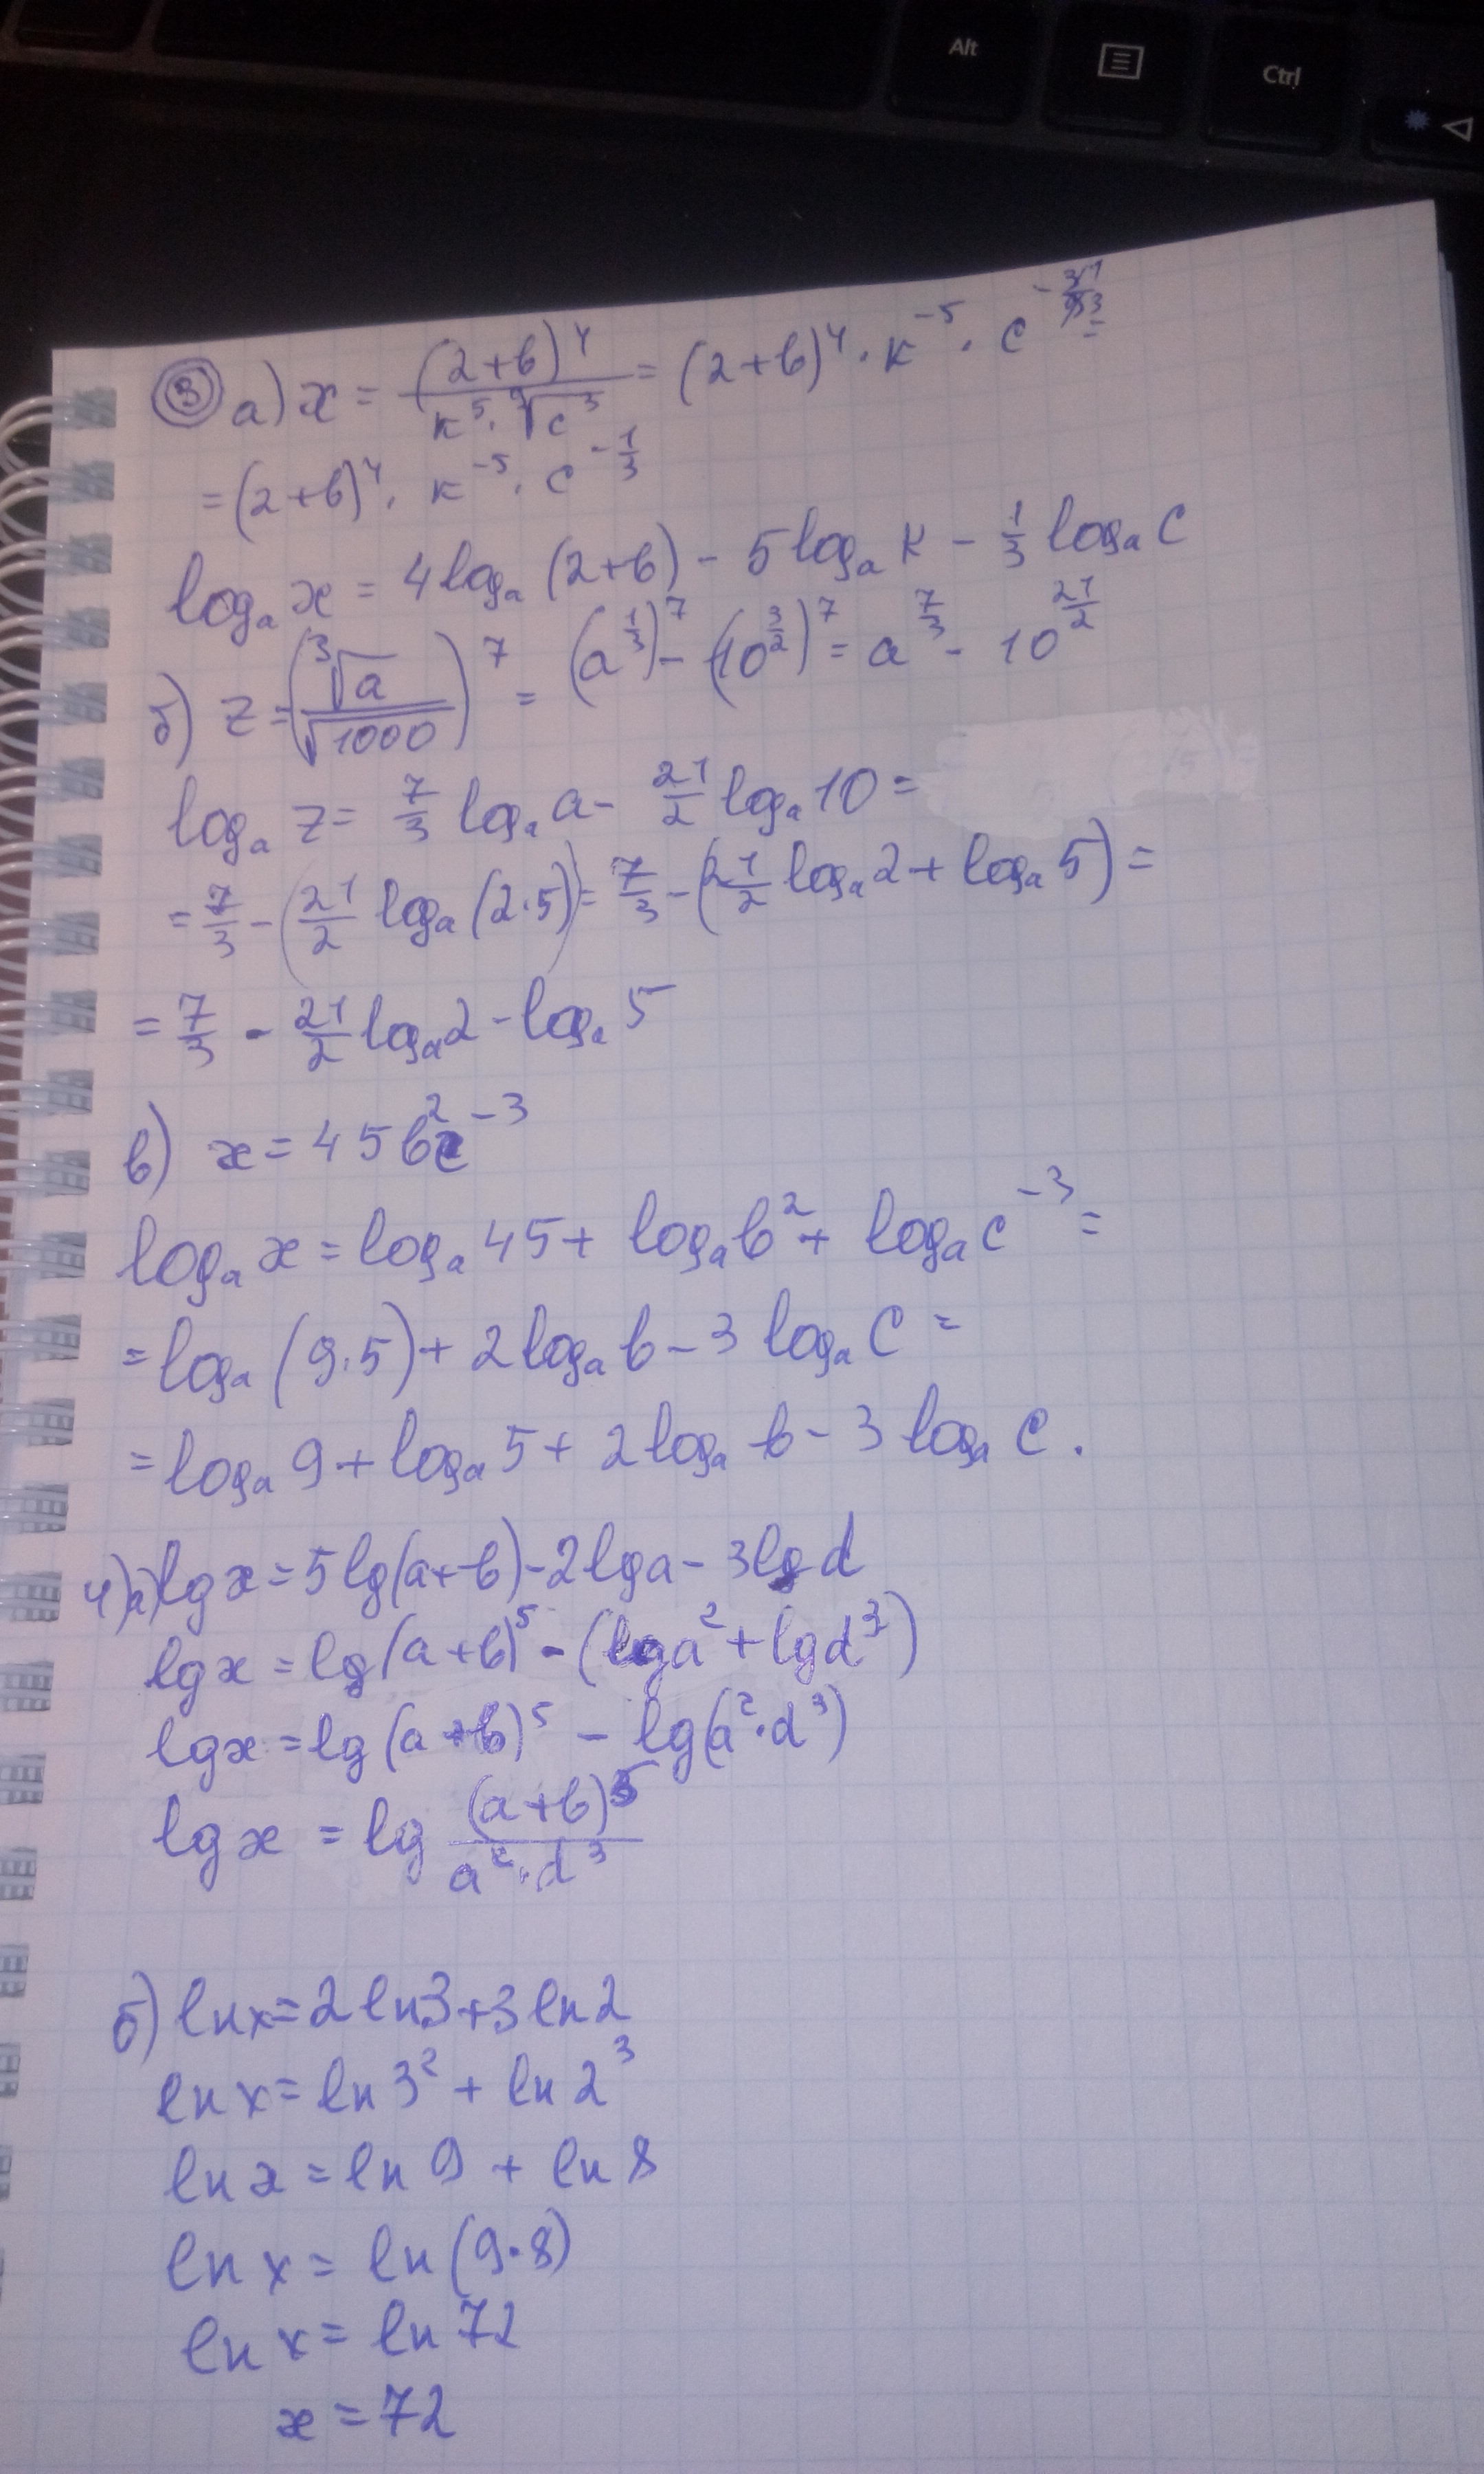 Alt Ctrl
③ а) x = (2+b)⁴ / (k⁵ · ⁹√c³) = (2+b)⁴ · k⁻⁵ · c^(-1/3) =
= (2+b)⁴ · k⁻⁵ · c^(-1/3)
logₐ x = 4 logₐ (2+b) - 5 logₐ k - 1/3 logₐ c
б) z = (³√a / √1000)⁷ = (a^(1/3))⁷ - (10^(3/2))⁷ = a^(7/3) - 10^(21/2)
logₐ z = 7/3 logₐ a - 21/2 logₐ 10 =
= 7/3 - (21/2 logₐ (2·5)) = 7/3 - (21/2 logₐ 2 + logₐ 5) =
= 7/3 - 21/2 logₐ 2 - logₐ 5
в) x = 45b²c⁻³
logₐ x = logₐ 45 + logₐ b² + logₐ c⁻³ =
= logₐ (9·5) + 2 logₐ b - 3 logₐ c =
= logₐ 9 + logₐ 5 + 2 logₐ b - 3 logₐ c.
4) а) lg x = 5 lg(a+b) - 2 lg a - 3 lg d
lg x = lg (a+b)⁵ - (lg a² + lg d³)
lg x = lg (a+b)⁵ - lg(a²·d³)
lg x = lg (a+b)⁵ / (a²·d³)
б) ln x = 2 ln 3 + 3 ln 2
ln x = ln 3² + ln 2³
ln x = ln 9 + ln 8
ln x = ln (9·8)
ln x = ln 72
x = 72